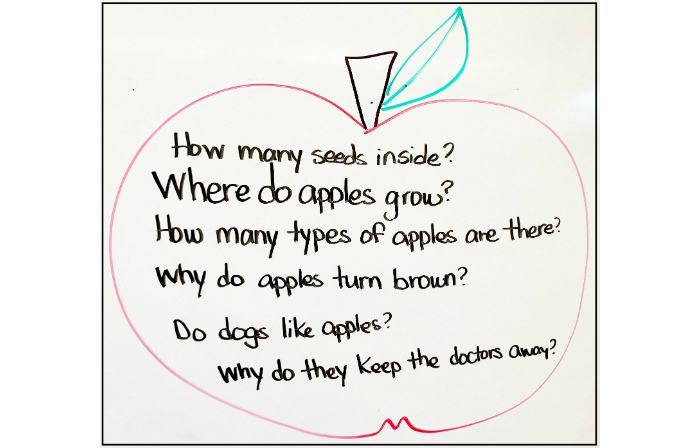 How many seeds inside?
Where do apples grow?
How many types of apples are there?
Why do apples turn brown?
Do dogs like apples?
Why do they keep the doctors away?